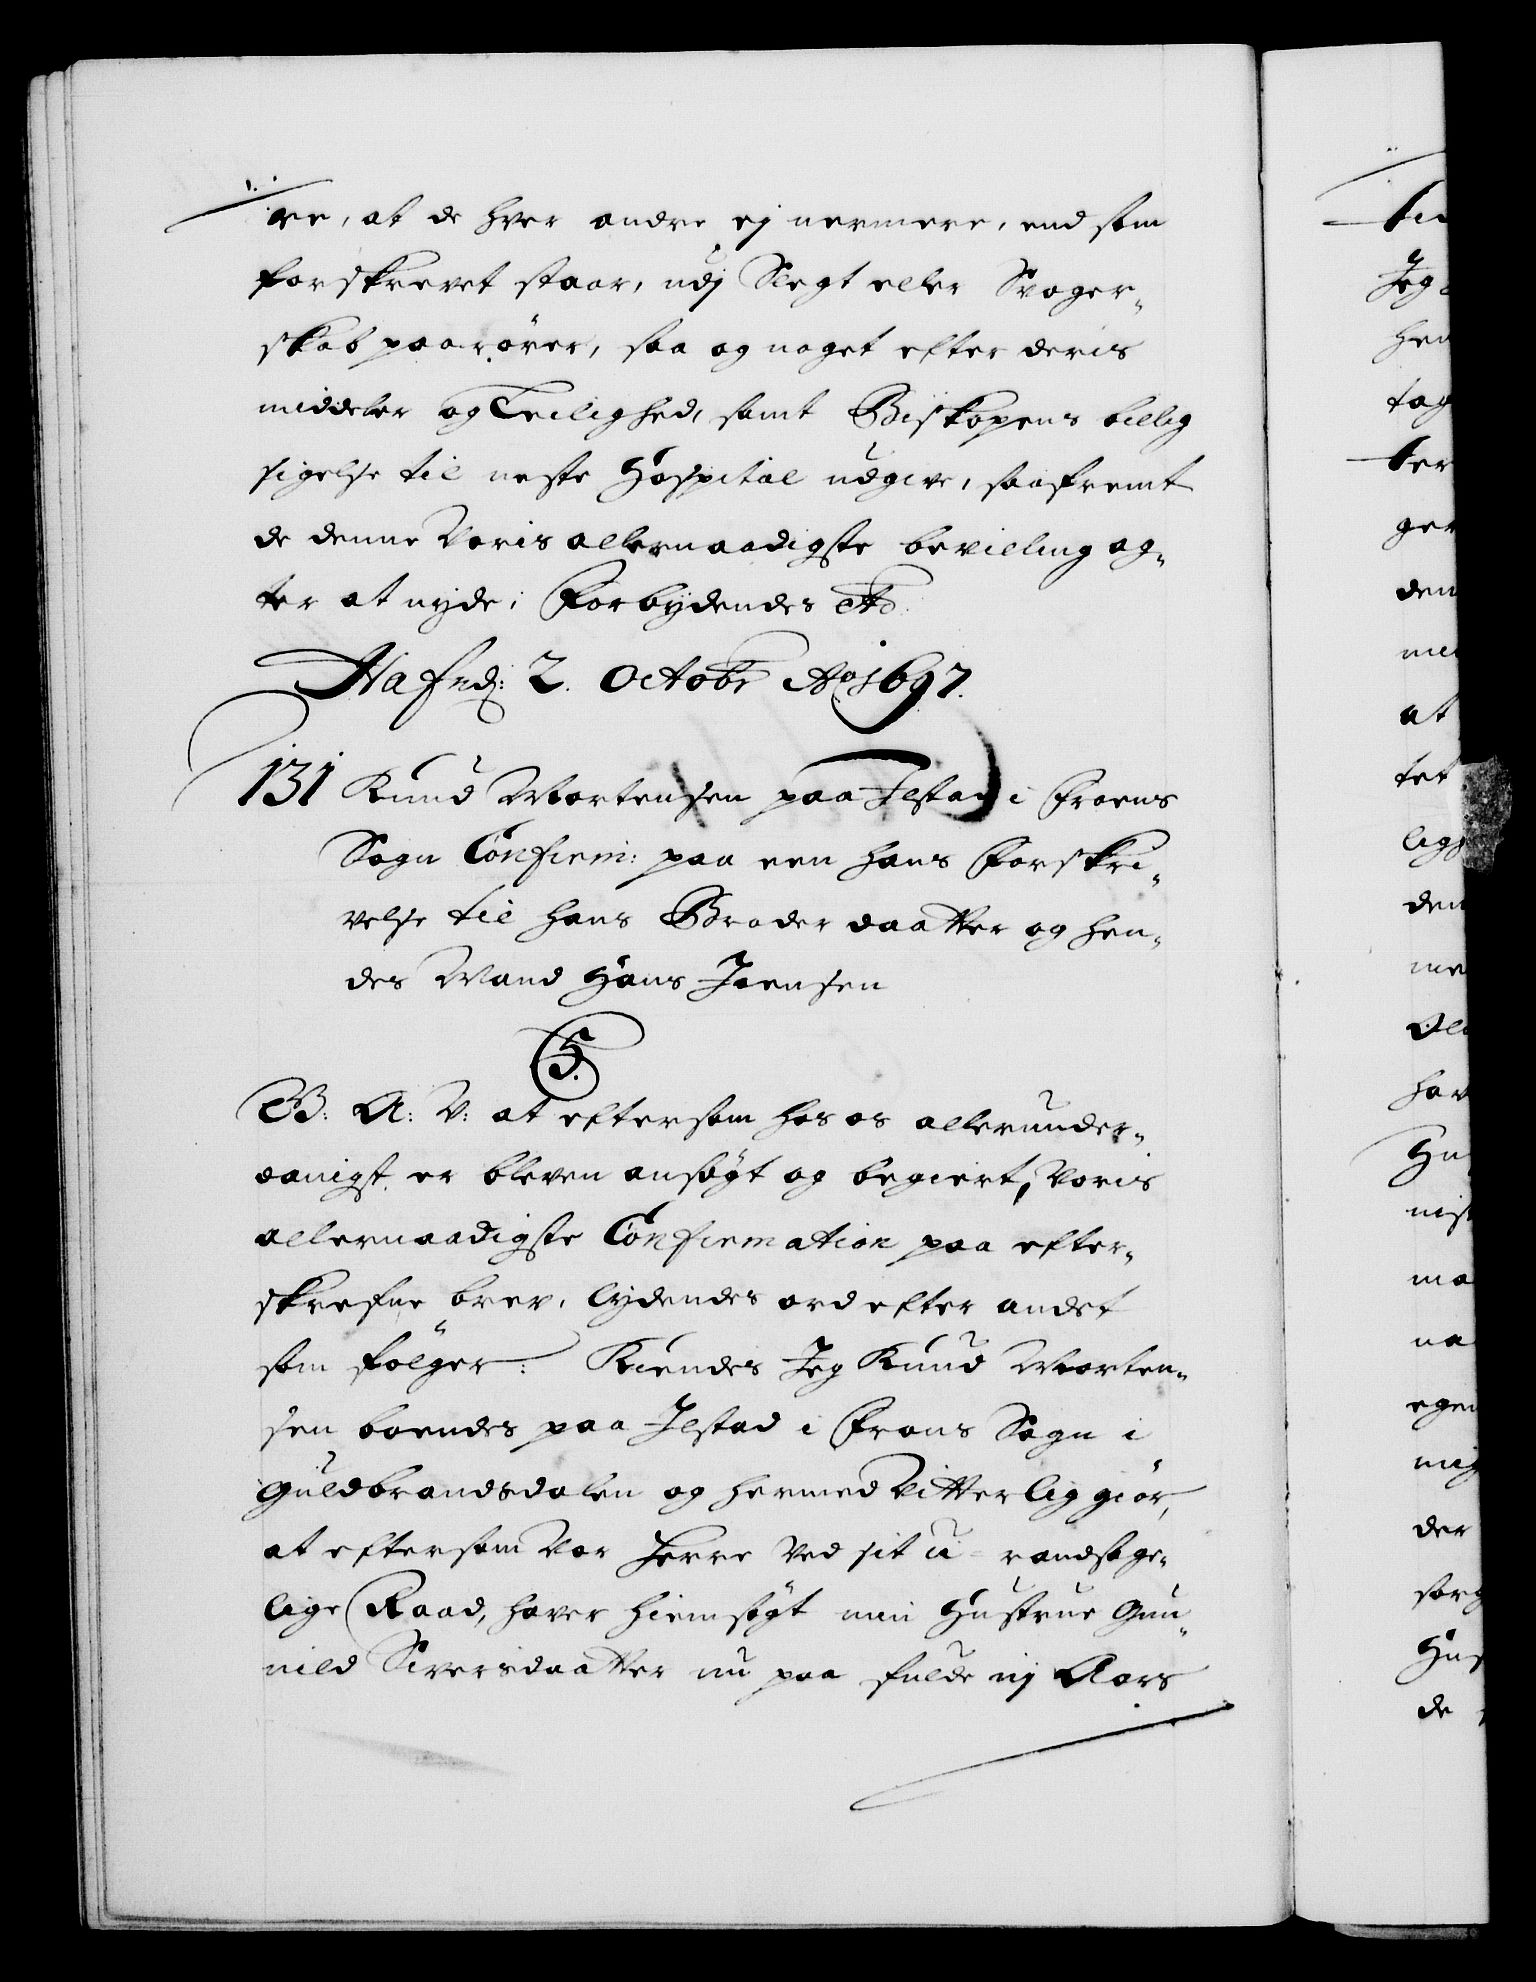 re, at de hver andre ej nermere, end som
forskrevet staar, udj Slegt eller Svoger„
skab paarører, saa og noget efter deris
middeler og Leilighed, samt Biskopens billig
sigelse til neste Hospital udgive, saafremt
de denne Voris allernaadigste bevilling ag„
ter at nyde; Forbydendes &c.
Hafnæ: 2. Octobr Aō 1697.
131 Knud Mortensen paa Jlstad i Froens
Sogn Confirm: paa een hans Forskri„
velse til hans Broder daatter og hen„
des Mand Hans Joensen
5.
G. A: V: at eftersom hos os allerunder„
danigst er bleven ansøgt og begiert, Voris
allernaadigste Confirmation paa efter„
skrefne brev, lydendes ord efter andet
som følger: Kiendes Jeg Knud Morten„
sen boendes paa Jlstad i Frons Sogn i
Guldbrandsdalen og hermed vitterlig giör,
at eftersom Vor Herre ved sit u-randsage„
lige Raad, haver hiemsøgt min Hustrue Gun„
nild Siversdaatter nu paa fulde nj Aars